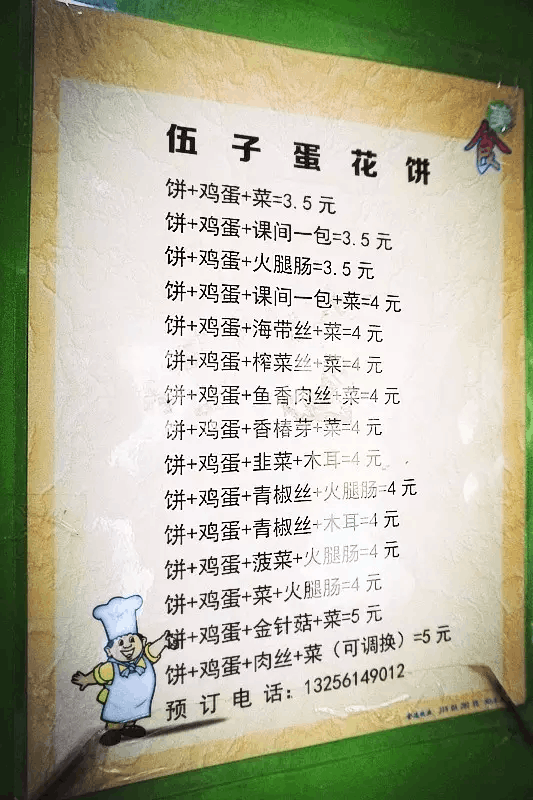 食
伍子蛋花饼
饼+鸡蛋+菜=3.5元
饼+鸡蛋+课间一包=3.5元
饼+鸡蛋+火腿肠=3.5元
饼+鸡蛋+课间一包+菜=4元
饼+鸡蛋+海带丝+菜=4元
饼+鸡蛋+榨菜丝+菜=4元
饼+鸡蛋+鱼香肉丝+菜=4元
饼+鸡蛋+香椿芽+菜=4元
饼+鸡蛋+韭菜+木耳=4元
饼+鸡蛋+青椒丝+火腿肠=4元
饼+鸡蛋+青椒丝+木耳=4元
饼+鸡蛋+菠菜+火腿肠=4元
饼+鸡蛋+菜+火腿肠=4元
饼+鸡蛋+金针菇+菜=5元
饼+鸡蛋+肉丝+菜（可调换）=5元
预订电话：13256149012